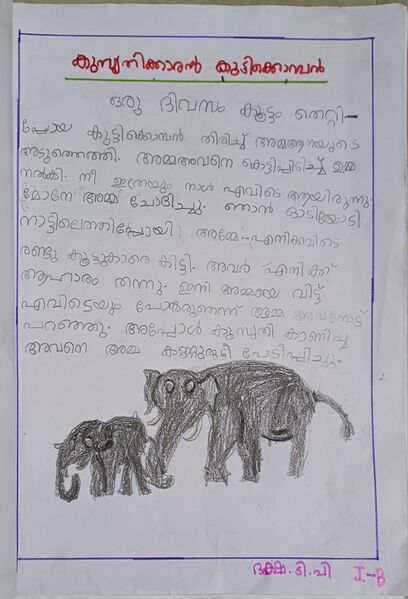 കുസൃതിക്കാരൻ കുട്ടിക്കൊമ്പൻ
ഒരു ദിവസം കൂട്ടം തെറ്റി-
പ്പോയ കുട്ടിക്കൊമ്പൻ തിരിച്ച് അമ്മആനയുടെ
അടുത്തെത്തി. അമ്മഅവനെ കെട്ടിപ്പിടിച്ച് ഉമ്മ
നൽകി. നീ ഇത്രയും നാൾ എവിടെ ആയിരുന്നു
മോനേ അമ്മ ചോദിച്ചു. ഞാൻ ഓടിയോടി
നാട്ടിലെത്തിപ്പോയി അമ്മേ എനിക്കവിടെ
രണ്ടു കൂട്ടുകാരെ കിട്ടി. അവർ എനിക്ക്
ആഹാരം തന്നു. ഇനി അമ്മയെ വിട്ട്
എവിടെയും പോകരുതെന്ന് അമ്മ അവനോട്
പറഞ്ഞു. അപ്പോൾ കുസൃതി കാണിച്ച
അവനെ അമ്മ കണ്ണുരുട്ടി പേടിപ്പിച്ചു.
ദക്ഷ. ടി. പി I-B